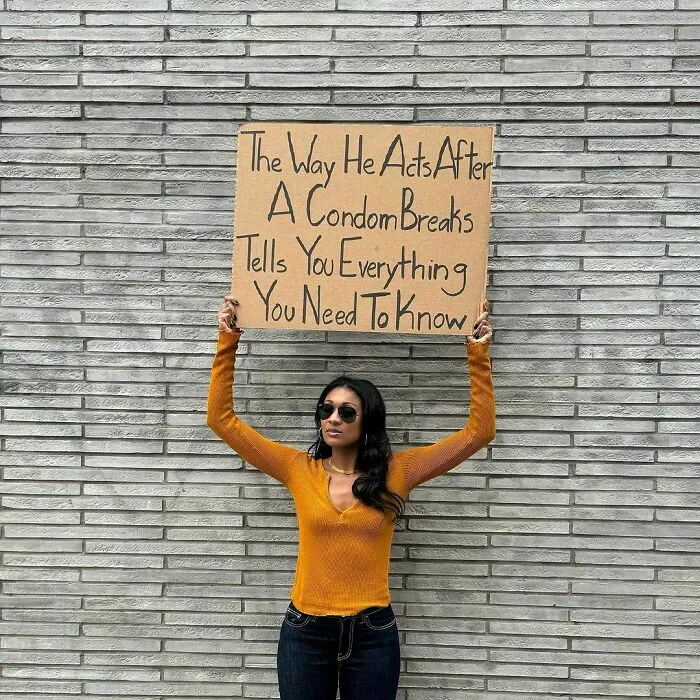 The Way He Acts After
A Condom Breaks
Tells You Everything
You Need To Know